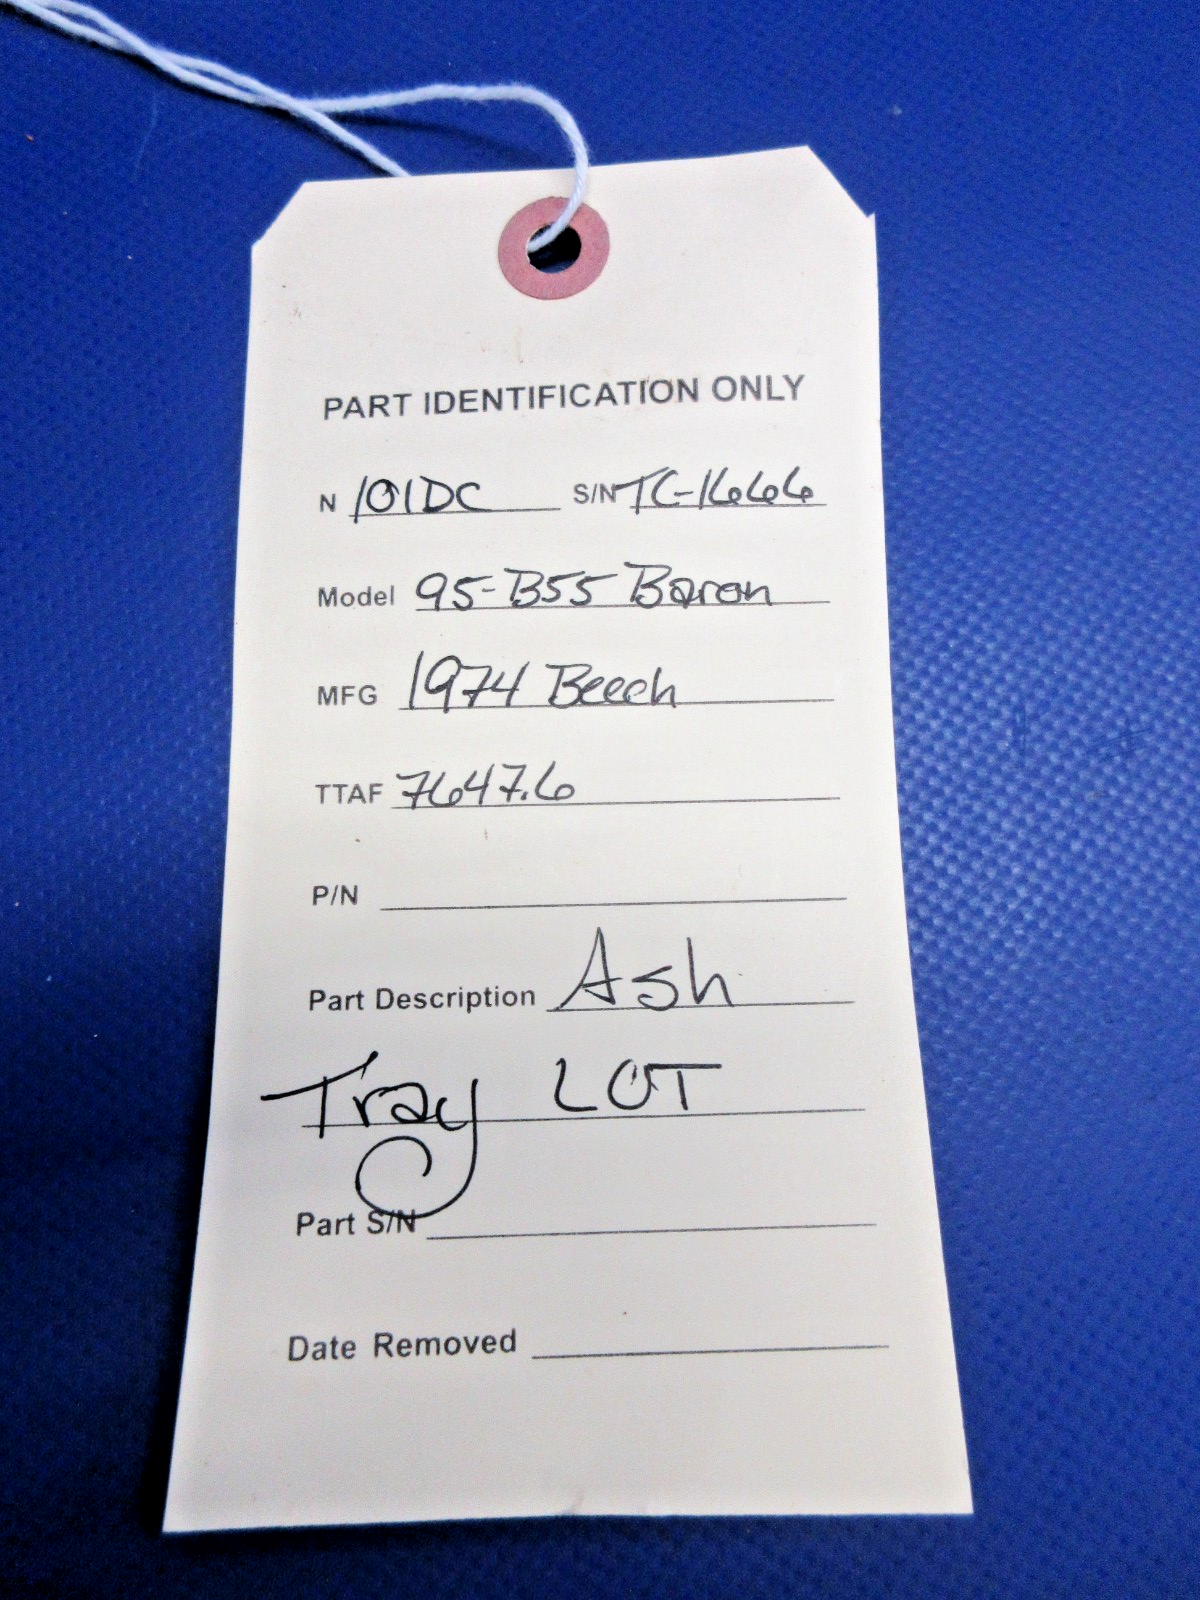 PART IDENTIFICATION ONLY
N 101DC S/N TC-1666
Model 95-B55 Baron
MFG 1974 Beech
TTAF 7647.6
P/N
Part Description Ash
Tray LOT
Part S/N
Date Removed